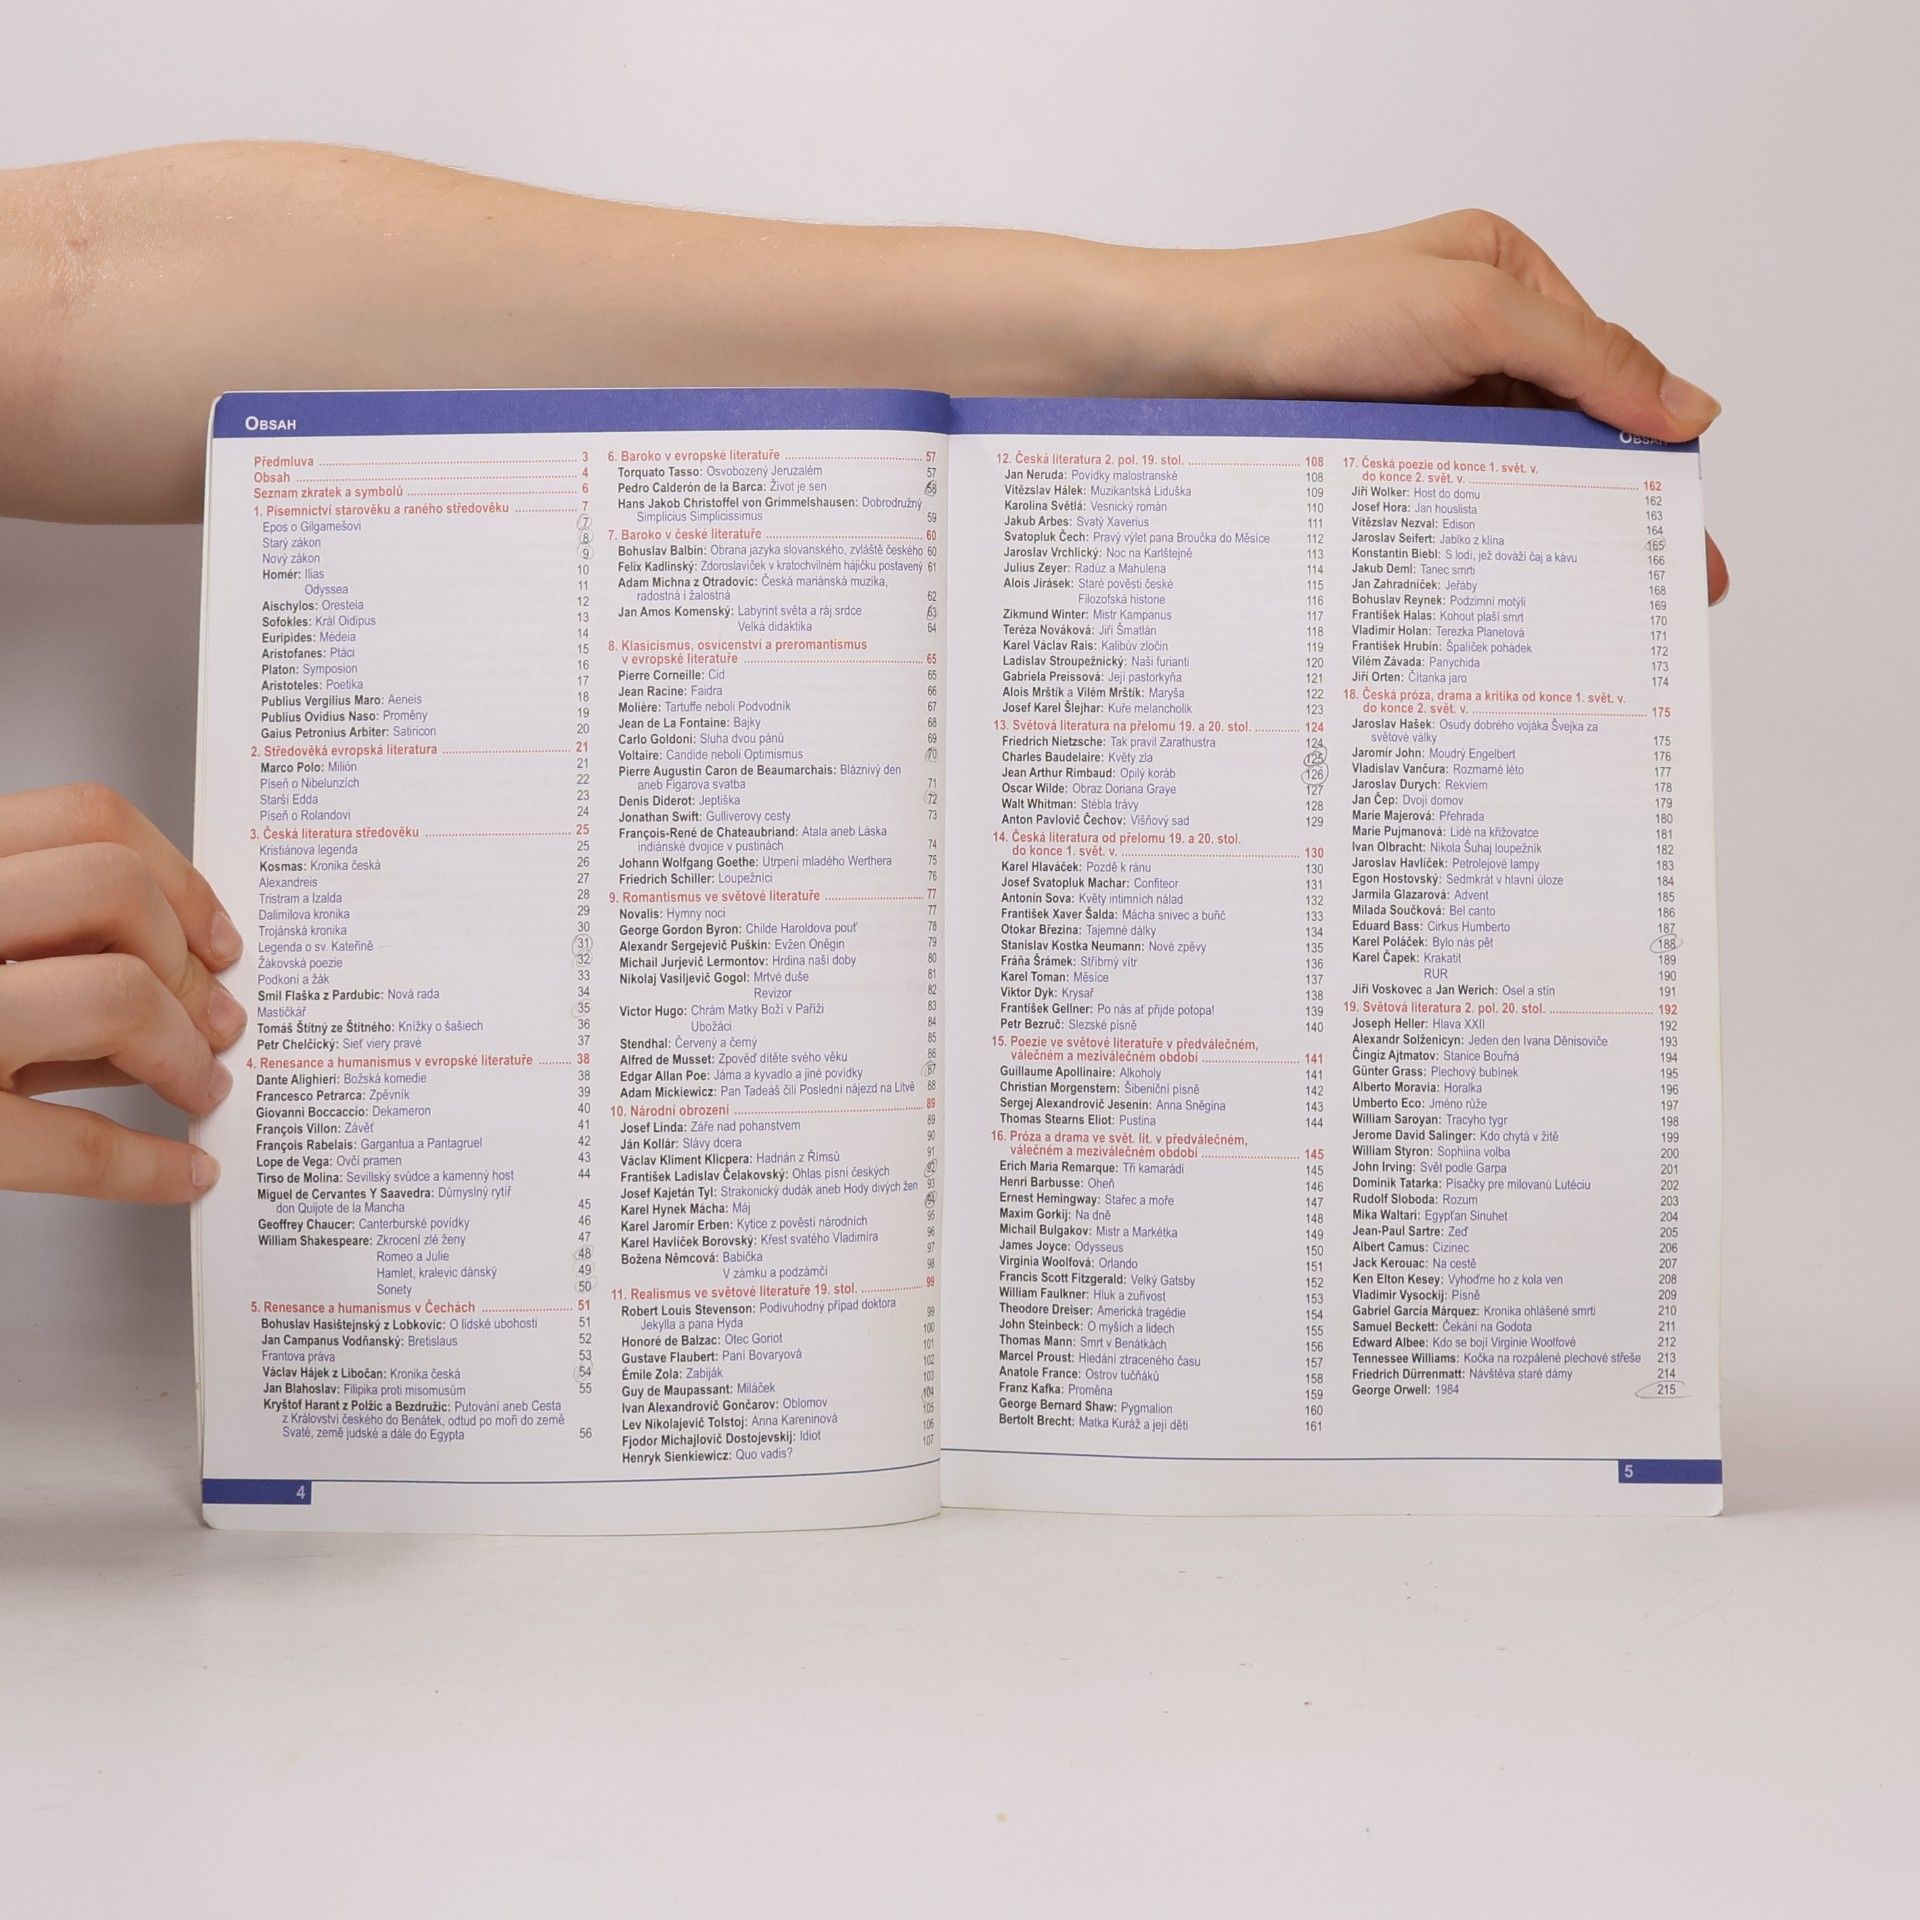 OBSAH
Předmluva 3
Obsah 4
Seznam zkratek a symbolů 6
1. Písemnictví starověku a raného středověku 7
Epos o Gilgamešovi 7
Starý zákon 8
Nový zákon 9
Homér: Ilias 10
Odyssea 11
Aischylos: Oresteia 12
Sofokles: Král Oidipus 13
Euripides: Médeia 14
Aristofanes: Ptáci 15
Platon: Symposion 16
Aristoteles: Poetika 17
Publius Vergilius Maro: Aeneis 18
Publius Ovidius Naso: Proměny 19
Gaius Petronius Arbiter: Satiricon 20
2. Středověká evropská literatura 21
Marco Polo: Milión 21
Píseň o Nibelunzích 22
Starší Edda 23
Píseň o Rolandovi 24
3. Česká literatura středověku 25
Kristiánova legenda 25
Kosmas: Kronika česká 26
Alexandreis 27
Tristram a Izalda 28
Dalimilova kronika 29
Trojánská kronika 30
Legenda o sv. Kateřině 31
Žákovská poezie 32
Podkoní a žák 33
Smil Flaška z Pardubic: Nová rada 34
Mastičkář 35
Tomáš Štítný ze Štítného: Knížky o šašiech 36
Petr Chelčický: Sieť viery pravé 37
4. Renesance a humanismus v evropské literatuře 38
Dante Alighieri: Božská komedie 38
Francesco Petrarca: Zpěvník 39
Giovanni Boccaccio: Dekameron 40
François Villon: Závěť 41
François Rabelais: Gargantua a Pantagruel 42
Lope de Vega: Ovčí pramen 43
Tirso de Molina: Sevillský svůdce a kamenný host 44
Miguel de Cervantes Y Saavedra: Důmyslný rytíř
don Quijote de la Mancha 45
Geoffrey Chaucer: Canterburské povídky 46
William Shakespeare: Zkrocení zlé ženy 47
Romeo a Julie 48
Hamlet, kralevic dánský 49
Sonety 50
5. Renesance a humanismus v Čechách 51
Bohuslav Hasištejnský z Lobkovic: O lidské ubohosti 51
Jan Campanus Vodňanský: Bretislaus 52
Frantova práva 53
Václav Hájek z Libočan: Kronika česká 54
Jan Blahoslav: Filipika proti misomusům 55
Kryštof Harant z Polžic a Bezdružic: Putování aneb Cesta
z Království českého do Benátek, odtud po moři do země
Svaté, země judské a dále do Egypta 56
4
6. Baroko v evropské literatuře 57
Torquato Tasso: Osvobozený Jeruzalém 57
Pedro Calderón de la Barca: Život je sen 58
Hans Jakob Christoffel von Grimmelshausen: Dobrodružný
Simplicius Simplicissimus 59
7. Baroko v české literatuře 60
Bohuslav Balbín: Obrana jazyka slovanského, zvláště českého 60
Felix Kadlinský: Zdoroslavíček v kratochvilném hájíčku postavený 61
Adam Michna z Otradovic: Česká mariánská muzika,
radostná i žalostná 62
Jan Amos Komenský: Labyrint světa a ráj srdce 63
Velká didaktika 64
8. Klasicismus, osvícenství a preromantismus
v evropské literatuře 65
Pierre Corneille: Cid 65
Jean Racine: Faidra 66
Molière: Tartuffe neboli Podvodník 67
Jean de La Fontaine: Bajky 68
Carlo Goldoni: Sluha dvou pánů 69
Voltaire: Candide neboli Optimismus 70
Pierre Augustin Caron de Beaumarchais: Bláznivý den
aneb Figarova svatba 71
Denis Diderot: Jeptiška 72
Jonathan Swift: Gulliverovy cesty 73
François-René de Chateaubriand: Atala aneb Láska
indiánské dvojice v pustinách 74
Johann Wolfgang Goethe: Utrpení mladého Werthera 75
Friedrich Schiller: Loupežníci 76
9. Romantismus ve světové literatuře 77
Novalis: Hymny noci 77
George Gordon Byron: Childe Haroldova pouť 78
Alexandr Sergejevič Puškin: Evžen Oněgin 79
Michail Jurjevič Lermontov: Hrdina naší doby 80
Nikolaj Vasiljevič Gogol: Mrtvé duše 81
Revizor 82
Victor Hugo: Chrám Matky Boží v Paříži 83
Ubožáci 84
Stendhal: Červený a černý 85
Alfred de Musset: Zpověď dítěte svého věku 86
Edgar Allan Poe: Jáma a kyvadlo a jiné povídky 87
Adam Mickiewicz: Pan Tadeáš čili Poslední nájezd na Litvě 88
10. Národní obrození 89
Josef Linda: Záře nad pohanstvem 89
Ján Kollár: Slávy dcera 90
Václav Kliment Klicpera: Hadrián z Římsů 91
František Ladislav Čelakovský: Ohlas písní českých 92
Josef Kajetán Tyl: Strakonický dudák aneb Hody divých žen 93
Karel Hynek Mácha: Máj 94
Karel Jaromír Erben: Kytice z pověstí národních 95
Karel Havlíček Borovský: Křest svatého Vladimíra 96
Božena Němcová: Babička 97
V zámku a podzámčí 98
11. Realismus ve světové literatuře 19. stol. 99
Robert Louis Stevenson: Podivuhodný případ doktora
Jekylla a pana Hyda 99
Honoré de Balzac: Otec Goriot 100
Gustave Flaubert: Paní Bovaryová 101
Émile Zola: Zabiják 102
Guy de Maupassant: Miláček 103
Ivan Alexandrovič Gončarov: Oblomov 104
Lev Nikolajevič Tolstoj: Anna Kareninová 105
Fjodor Michajlovič Dostojevskij: Idiot 106
Henryk Sienkiewicz: Quo vadis? 107
OBSAH
12. Česká literatura 2. pol. 19. stol. 108
Jan Neruda: Povídky malostranské 108
Vítězslav Hálek: Muzikantská Liduška 109
Karolina Světlá: Vesnický román 110
Jakub Arbes: Svatý Xaverius 111
Svatopluk Čech: Pravý výlet pana Broučka do Měsíce 112
Jaroslav Vrchlický: Noc na Karlštejně 113
Julius Zeyer: Radúz a Mahulena 114
Alois Jirásek: Staré pověsti české 115
Filozofská historie 116
Zikmund Winter: Mistr Kampanus 117
Teréza Nováková: Jiří Šmatlán 118
Karel Václav Rais: Kalibův zločin 119
Ladislav Stroupežnický: Naši furianti 120
Gabriela Preissová: Její pastorkyňa 121
Alois Mrštík a Vilém Mrštík: Maryša 122
Josef Karel Šlejhar: Kuře melancholik 123
13. Světová literatura na přelomu 19. a 20. stol. 124
Friedrich Nietzsche: Tak pravil Zarathustra 124
Charles Baudelaire: Květy zla 125
Jean Arthur Rimbaud: Opilý koráb 126
Oscar Wilde: Obraz Doriana Graye 127
Walt Whitman: Stébla trávy 128
Anton Pavlovič Čechov: Višňový sad 129
14. Česká literatura od přelomu 19. a 20. stol.
do konce 1. svět. v. 130
Karel Hlaváček: Pozdě k ránu 130
Josef Svatopluk Machar: Confiteor 131
Antonín Sova: Květy intimních nálad 132
František Xaver Šalda: Mácha snivec a buřič 133
Otokar Březina: Tajemné dálky 134
Stanislav Kostka Neumann: Nové zpěvy 135
Fráňa Šrámek: Stříbrný vítr 136
Karel Toman: Měsíce 137
Viktor Dyk: Krysař 138
František Gellner: Po nás ať přijde potopa! 139
Petr Bezruč: Slezské písně 140
15. Poezie ve světové literatuře v předválečném,
válečném a meziválečném období 141
Guillaume Apollinaire: Alkoholy 141
Christian Morgenstern: Šibeniční písně 142
Sergej Alexandrovič Jesenin: Anna Sněgina 143
Thomas Stearns Eliot: Pustina 144
16. Próza a drama ve svět. lit. v předválečném,
válečném a meziválečném období 145
Erich Maria Remarque: Tři kamarádi 145
Henri Barbusse: Oheň 146
Ernest Hemingway: Stařec a moře 147
Maxim Gorkij: Na dně 148
Michail Bulgakov: Mistr a Markétka 149
James Joyce: Odysseus 150
Virginia Woolfová: Orlando 151
Francis Scott Fitzgerald: Velký Gatsby 152
William Faulkner: Hluk a zuřivost 153
Theodore Dreiser: Americká tragédie 154
John Steinbeck: O myších a lidech 155
Thomas Mann: Smrt v Benátkách 156
Marcel Proust: Hledání ztraceného času 157
Anatole France: Ostrov tučňáků 158
Franz Kafka: Proměna 159
George Bernard Shaw: Pygmalion 160
Bertolt Brecht: Matka Kuráž a její děti 161
17. Česká poezie od konce 1. svět. v.
do konce 2. svět. v. 162
Jiří Wolker: Host do domu 162
Josef Hora: Jan houslista 163
Vítězslav Nezval: Edison 164
Jaroslav Seifert: Jablko z klína 165
Konstantin Biebl: S lodí, jež dováží čaj a kávu 166
Jakub Deml: Tanec smrti 167
Jan Zahradníček: Jeřáby 168
Bohuslav Reynek: Podzimní motýli 169
František Halas: Kohout plaší smrt 170
Vladimír Holan: Terezka Planetová 171
František Hrubín: Špalíček pohádek 172
Vilém Závada: Panychida 173
Jiří Orten: Čítanka jaro 174
18. Česká próza, drama a kritika od konce 1. svět. v.
do konce 2. svět. v. 175
Jaroslav Hašek: Osudy dobrého vojáka Švejka za
světové války 175
Jaromír John: Moudrý Engelbert 176
Vladislav Vančura: Rozmarné léto 177
Jaroslav Durych: Rekviem 178
Jan Čep: Dvojí domov 179
Marie Majerová: Přehrada 180
Marie Pujmanová: Lidé na křižovatce 181
Ivan Olbracht: Nikola Šuhaj loupežník 182
Jaroslav Havlíček: Petrolejové lampy 183
Egon Hostovský: Sedmkrát v hlavní úloze 184
Jarmila Glazarová: Advent 185
Milada Součková: Bel canto 186
Eduard Bass: Cirkus Humberto 187
Karel Poláček: Bylo nás pět 188
Karel Čapek: Krakatit 189
RUR 190
Jiří Voskovec a Jan Werich: Osel a stín 191
19. Světová literatura 2. pol. 20. stol. 192
Joseph Heller: Hlava XXII 192
Alexandr Solženicyn: Jeden den Ivana Děnisoviče 193
Čingiz Ajtmatov: Stanice Bouřná 194
Günter Grass: Plechový bubínek 195
Alberto Moravia: Horalka 196
Umberto Eco: Jméno růže 197
William Saroyan: Tracyho tygr 198
Jerome David Salinger: Kdo chytá v žitě 199
William Styron: Sophiina volba 200
John Irving: Svět podle Garpa 201
Dominik Tatarka: Písačky pre milovanú Lutéciu 202
Rudolf Sloboda: Rozum 203
Mika Waltari: Egypťan Sinuhet 204
Jean-Paul Sartre: Zeď 205
Albert Camus: Cizinec 206
Jack Kerouac: Na cestě 207
Ken Elton Kesey: Vyhoďme ho z kola ven 208
Vladimir Vysockij: Písně 209
Gabriel García Márquez: Kronika ohlášené smrti 210
Samuel Beckett: Čekání na Godota 211
Edward Albee: Kdo se bojí Virginie Woolfové 212
Tennessee Williams: Kočka na rozpálené plechové střeše 213
Friedrich Dürrenmatt: Návštěva staré dámy 214
George Orwell: 1984 215
5